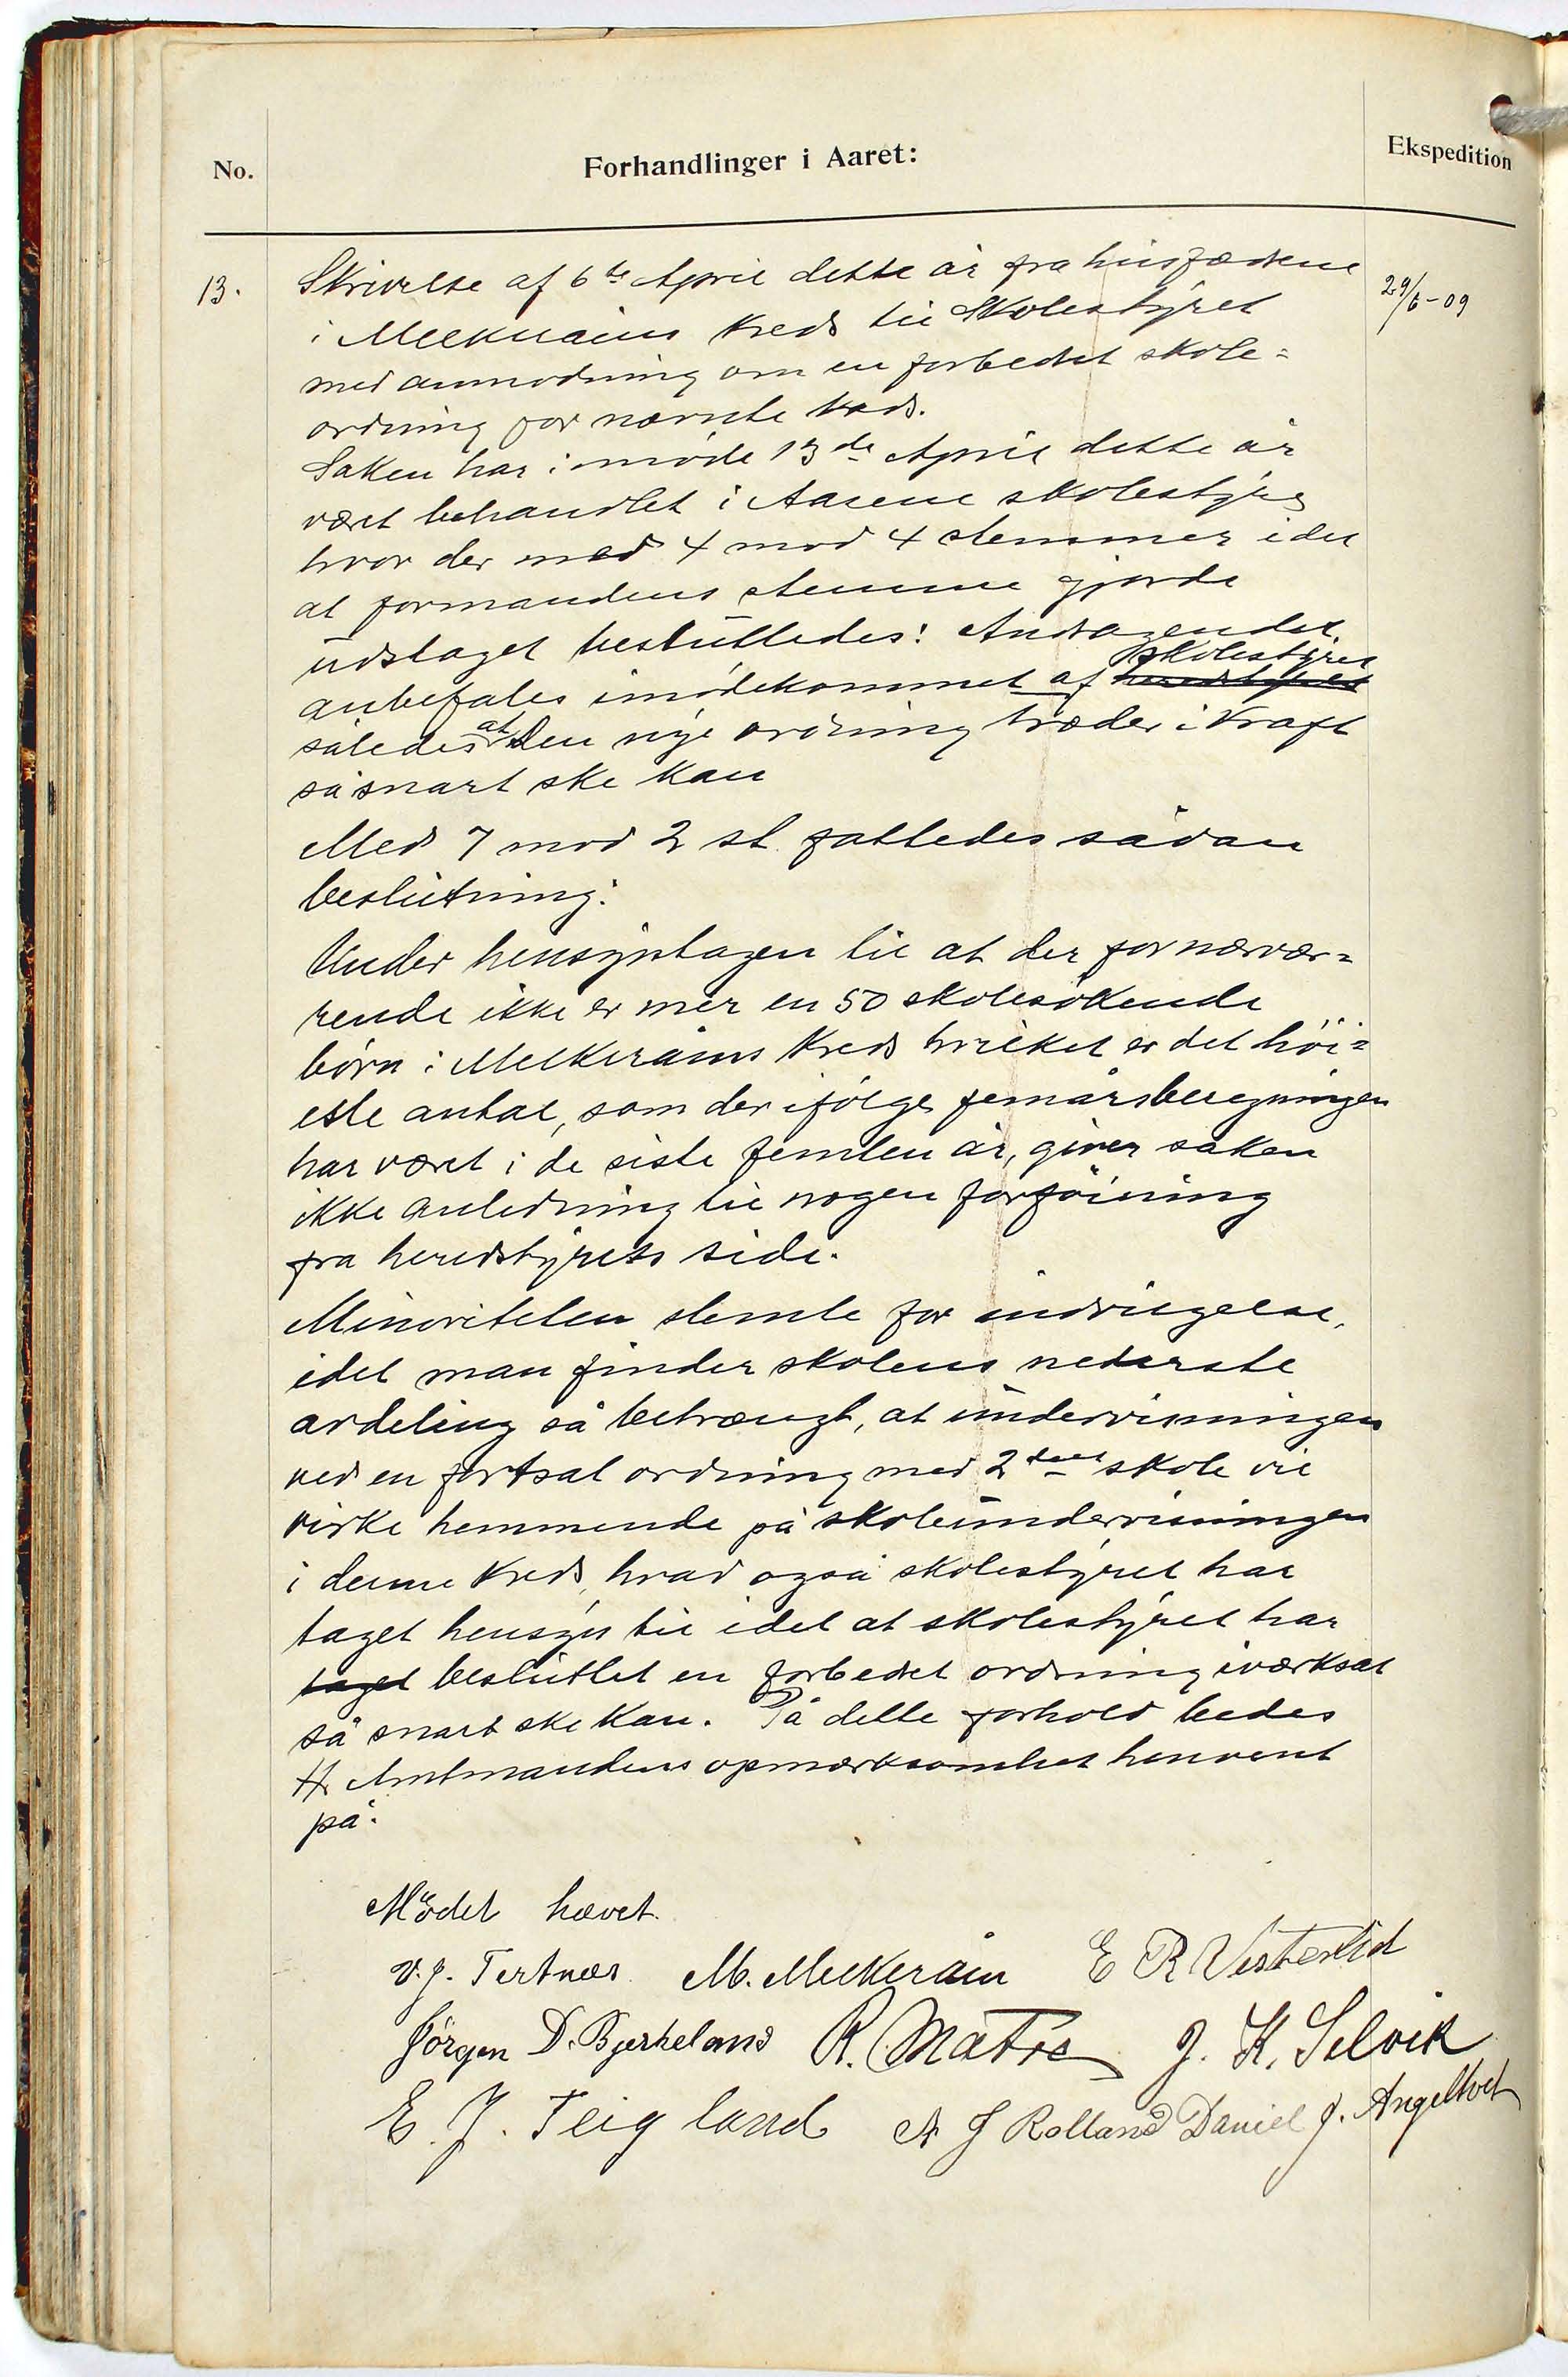 No.
Forhandlinger i Aaret:
Ekspedition
13.
29/6-09
Skrivelse af 6te April dette år fra husfædrene
i Melkeraaens kreds til Skolestyret
med anmodning om en forbedret skole=
ordning for nævnte kreds.
Saken har i møde 13de April dette år
været behandlet i Aasene skolestyre
hvor der med 4 mod 4 stemmer idet
at formandens stemme gjorde
udslaget besluttedes: Andragendet
anbefales imødekommet af herredstyret skolestyret
således at den nye ordning træder i kraft
såsnart ske kan
Med 7 mod 2 st. fattedes sådan
beslutning:
Under hensyntagen til at der for nærvær=
rende ikke er mer en 50 skolesøkende
børn i Melkeråens kreds hvilket er det høi=
este antal, som der ifølge femårsberegningen
har været i de siste femten år, giver saken
ikke anledning til nogen forføining
fra heredstyrets side.
Minoriteten stemte for indvilgelse,
idet man finder skolens nederste
avdeling så betrængt, at undervisningen
ved en fortsat ordning med 2delt skole vil
virke hemmende på skoleundervisningen
i denne kreds, hvad også skolestyret har
taget hensyn til idet at skolestyret har
taget besluttet en forbedret ordning iværksat
så snart ske kan. På dette forhold bedes
Hr Amtmandens opmærksomhet henvent
på.
Mödet hævet.
V. J. Tertnæs M. Melkeråen E R Vesterlid
Jörgen D. Bjerkeland R. Matre J. K. Selvik
E. J. Teigland A J Rolland Daniel J. Angeltvet